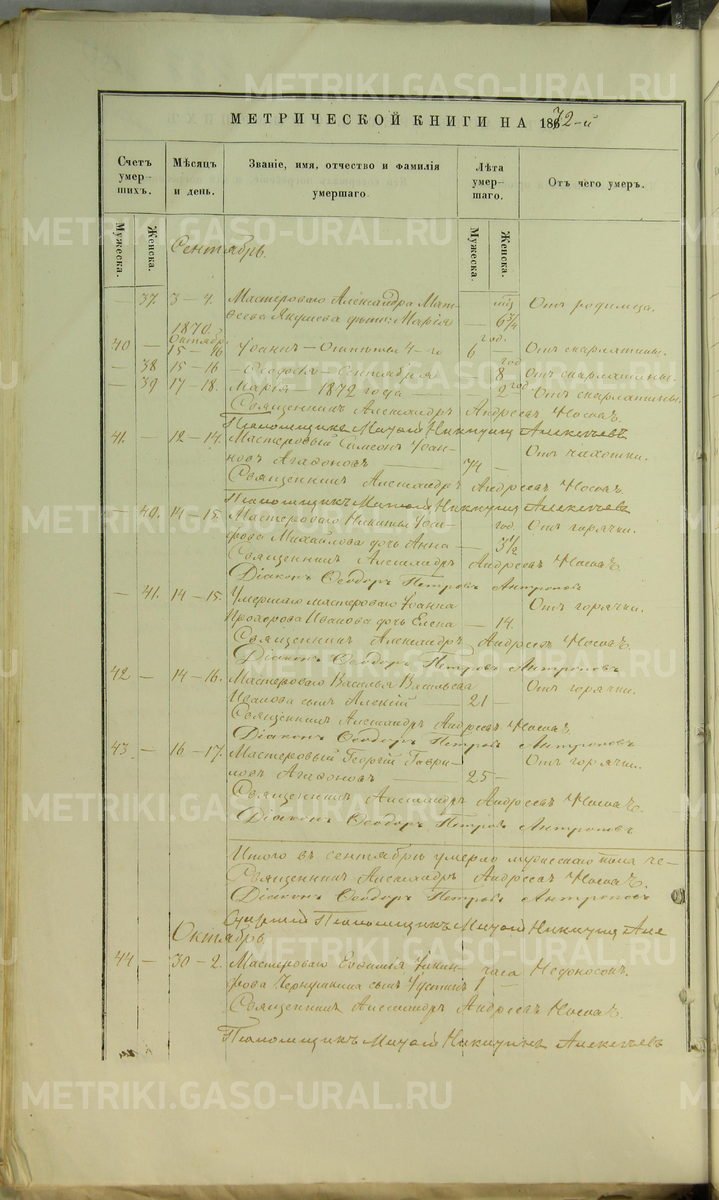 МЕТРИЧЕСКОЙ КНИГИ НА 1872-й
Счетъ умер- шихъ.
Мѣсяцъ и день.
Званіе, имя, отчество и фамилія умершаго.
Лѣта умер- шаго.
Отъ чего умеръ.
Мужеска.
Женска.
Мужеска.
Женска.
Сентябрь.
— 37. 3 — 4. Мастероваго Александра Мат-
вѣева дѣти: Марія — 6¾ Отъ родимца.
1870.
Октября
40 — 15 — 16 Іоаннъ — 4-го 6 — Отъ скарлатины.
— 38 15 — 16 — Ѳеодосья — Сентября — 8 Отъ скарлатины.
— 39 17 — 18. Марія — 1872 года — 2 год. Отъ скарлатины.
Священникъ Александръ Андреевъ Носовъ.
Псаломщикъ Алексѣевъ
41. — 12 — 14. Мастеровый Симеонъ Іоан-
новъ Агафоновъ — 74 — Отъ чахотки.
Священникъ Александръ Андреевъ Носовъ.
Псаломщикъ Алексѣевъ
— 40. 14 — 15. Мастероваго Никиты
Михайлова дочь Анна — 3½ год. Отъ горячки.
Священникъ Александръ Андреевъ Носовъ.
Діаконъ Ѳеодоръ Петровъ Антроповъ
— 41. 14 — 15. Умершаго мастероваго Іоанна
Прохорова Иванова дочь Елена — 14. Отъ горячки.
Священникъ Александръ Андреевъ Носовъ.
Діаконъ Ѳеодоръ Петровъ Антроповъ
42 — 14 — 16. Мастероваго Василья Васильева
Иванова сынъ Алексій — 21 — Отъ горячки.
Священникъ Александръ Андреевъ Носовъ.
Діаконъ Ѳеодоръ Петровъ Антроповъ
43. — 16 — 17. Мастеровый Георгій Гаври-
ловъ Агафоновъ — 25 — Отъ горячки.
Священникъ Александръ Андреевъ Носовъ.
Діаконъ Ѳеодоръ Петровъ Антроповъ
Итого въ сентябрѣ умерло мужескаго пола че-
Священникъ Александръ Андреевъ Носовъ.
Діаконъ Ѳеодоръ Петровъ Антроповъ
Псаломщикъ Але
Октябрь
44 — 30 — 2. Мастероваго Евфимія
сынъ Іустинъ 1 — часа Недоносокъ.
Священникъ Александръ Андреевъ Носовъ.
Псаломщикъ Алексѣевъ
METRIKI.GASO-URAL.RU